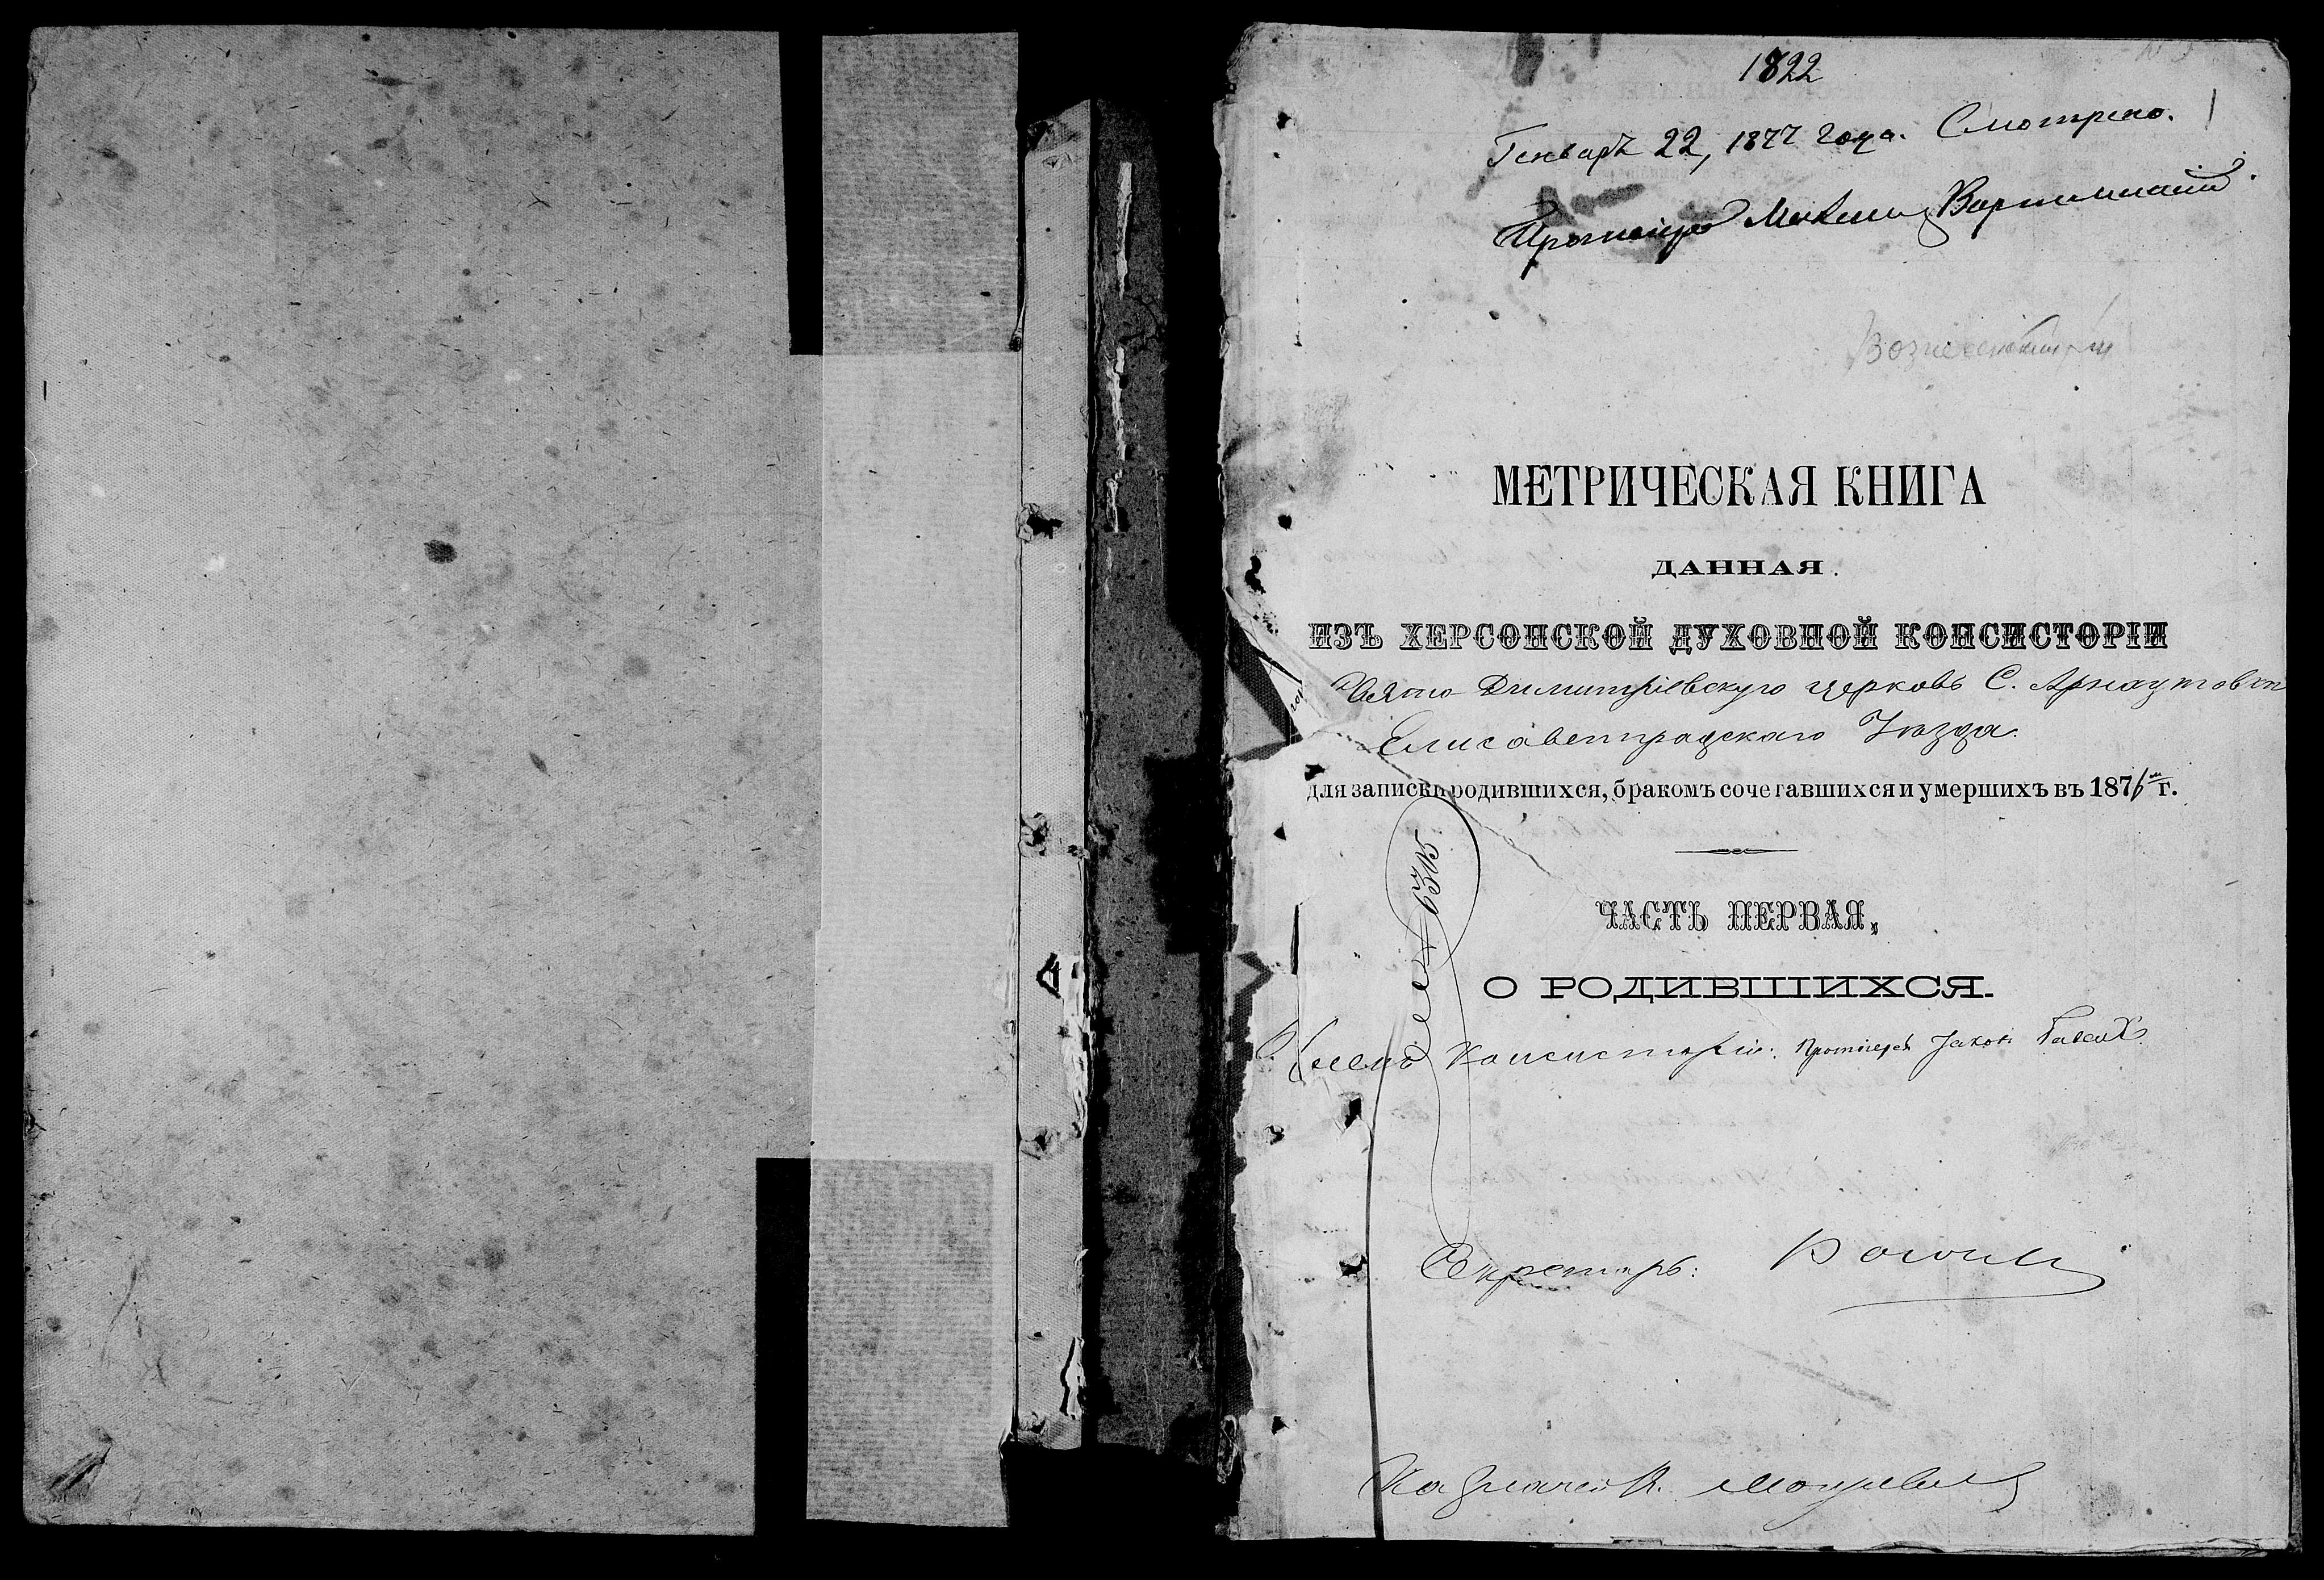 1822
1
Генварь 22, 1877 года. Смотрено.
Протоіерей
МЕТРИЧЕСКАЯ КНИГА
ДАННАЯ.
ИЗЪ ХЕРСОНСКОЙ ДУХОВНОЙ КОНСИСТОРІИ
Свято Димитріевскую церковь С. Арнаутовки
Елисаветградскаго Уѣзда.
для записки родившихся, бракомъ сочетавшихся и умершихъ въ 1876 г.
ЧАСТЬ ПЕРВАЯ,
О РОДИВШИХСЯ.
Членъ Консисторіи: Протоіерей Іаковъ
Секретарь:
Казначей